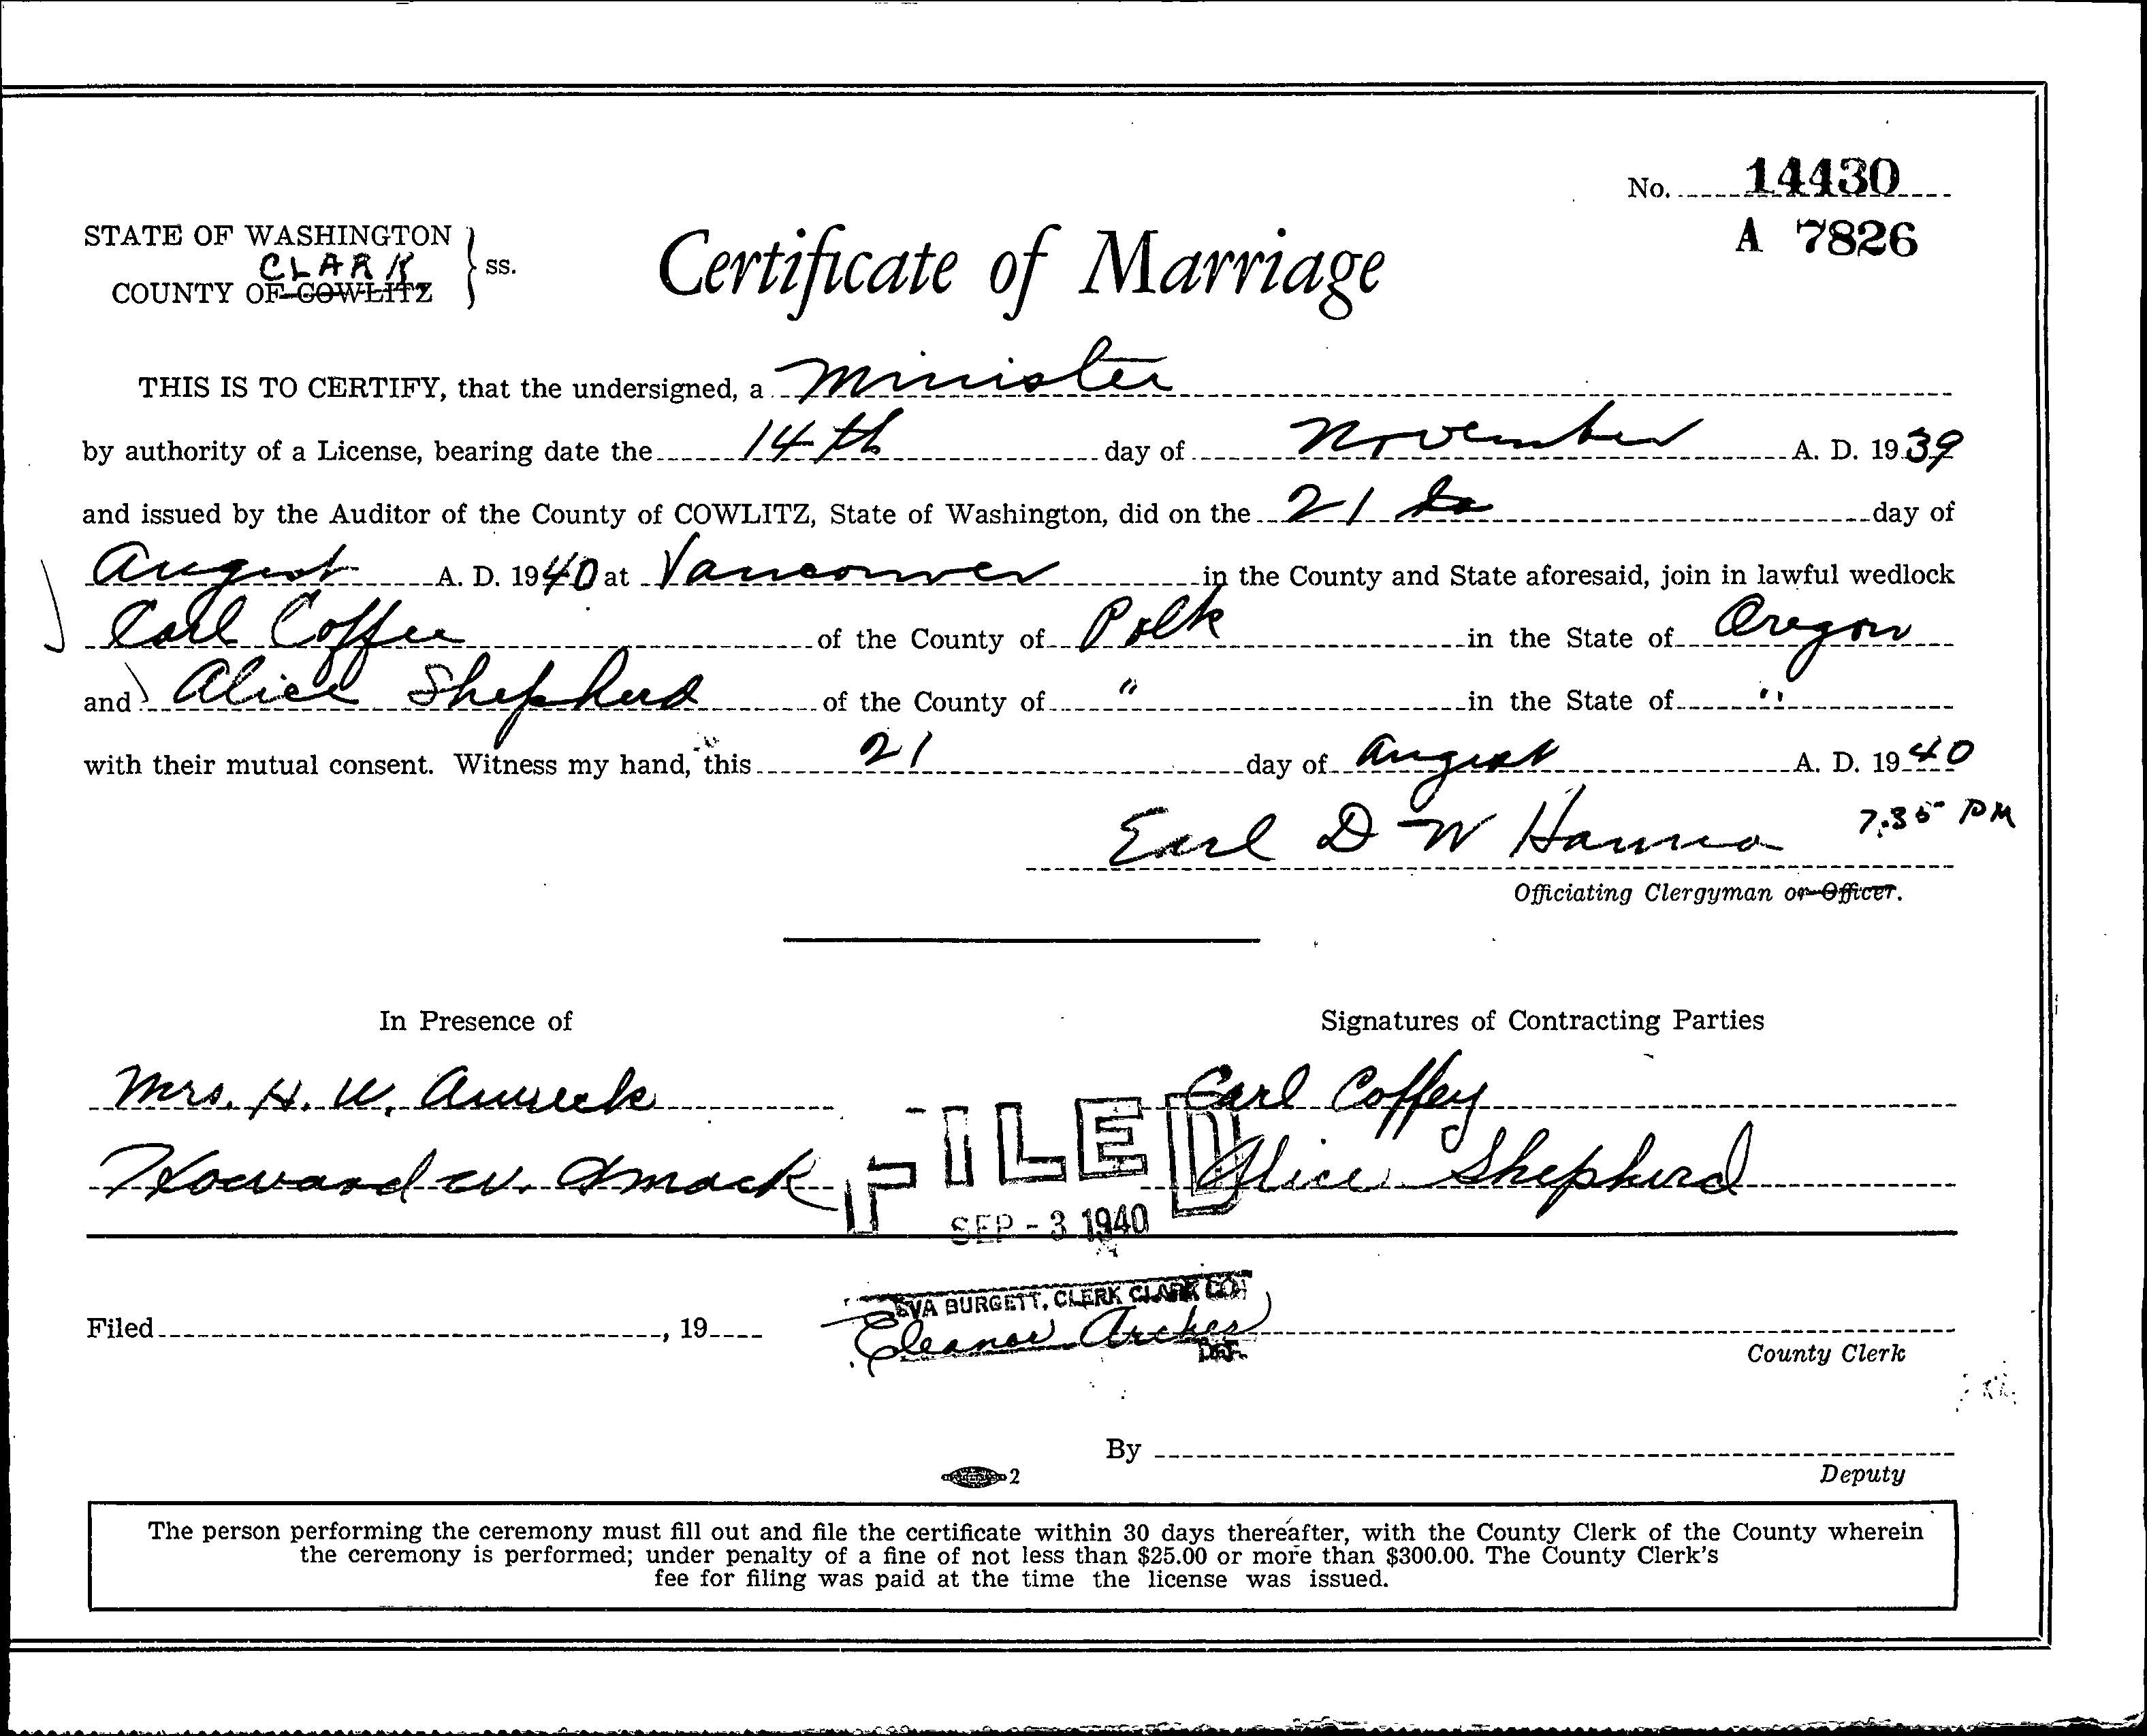 No. 14430
A 7826
STATE OF WASHINGTON } ss.
CLARK
COUNTY OF COWLITZ
Certificate of Marriage
THIS IS TO CERTIFY, that the undersigned, a Minister
by authority of a License, bearing date the 14th day of November A. D. 1939
and issued by the Auditor of the County of COWLITZ, State of Washington, did on the 21 day of
August A. D. 1940 at Vancouver in the County and State aforesaid, join in lawful wedlock
Carl Coffee of the County of Polk in the State of Oregon
and Alice Shepherd of the County of " in the State of "
with their mutual consent. Witness my hand, this 21 day of August A. D. 1940
Earl D W Hanna 7:35 PM
Officiating Clergyman or Officer.
In Presence of
Signatures of Contracting Parties
Mrs. H. W. Carl Coffey
Howard W. Amack Alice Shepherd
FILED
SEP - 3 1940
EVA BURGETT, CLERK CLARK CO.
Filed , 19 Eleanor Archer
Dep.
County Clerk
By
Deputy
2
The person performing the ceremony must fill out and file the certificate within 30 days thereafter, with the County Clerk of the County wherein
the ceremony is performed; under penalty of a fine of not less than $25.00 or more than $300.00. The County Clerk's
fee for filing was paid at the time the license was issued.